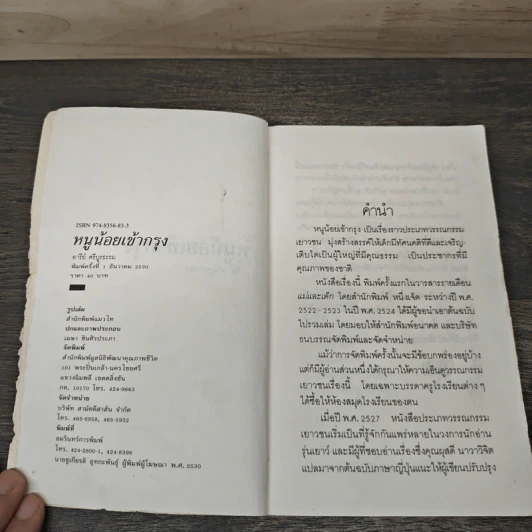 ISBN 974-8356-83-3
หนูน้อยเข้ากรุง
อารีย์ ศรีบูรธรรม
พิมพ์ครั้งที่ 1 ธันวาคม 2530
ราคา 40 บาท
รูปเล่ม
สำนักพิมพ์แมวไท
ปกและภาพประกอบ
เมษา ชินศิริประภา
จัดพิมพ์
สำนักพิมพ์มูลนิธิพัฒนาคุณภาพชีวิต
101 พระปิ่นเกล้า-นครไชยศรี
แขวงฉิมพลี เขตตลิ่งชัน
กท. 10170 โทร. 424-9663
จัดจำหน่าย
บริษัท สามัคคีสาส์น จำกัด
โทร. 465-0958, 465-0952
พิมพ์ที่
อมรินทร์การพิมพ์
โทร. 424-2800-1, 424-8396
นายชูเกียรติ อุทกะพันธุ์ ผู้พิมพ์ผู้โฆษณา พ.ศ. 2530
คำนำ
หนูน้อยเข้ากรุง เป็นเรื่องราวประเภทวรรณกรรม
เยาวชน มุ่งสร้างสรรค์ให้เด็กมีทัศนคติที่ดีและเจริญ
เติบโตเป็นผู้ใหญ่ที่มีคุณธรรม เป็นประชากรที่มี
คุณภาพของชาติ
หนังสือเรื่องนี้ พิมพ์ครั้งแรกในวารสารรายเดือน
แม่และเด็ก โดยสำนักพิมพ์ หนึ่งเจ็ด ระหว่างปี พ.ศ.
2522-2523 ในปี พ.ศ. 2524 ได้มีผู้ขอนำเอาต้นฉบับ
ไปรวมเล่ม โดยมอบให้สำนักพิมพ์อนาคต และบริษัท
ธนบรรณจัดพิมพ์และจัดจำหน่าย
แม้ว่าการจัดพิมพ์ครั้งนั้นจะมีข้อบกพร่องอยู่บ้าง
แต่ก็มีผู้อ่านส่วนหนึ่งได้กรุณาให้ความเอ็นดูวรรณกรรม
เยาวชนเรื่องนี้ โดยเฉพาะบรรดาครูโรงเรียนต่าง ๆ
ได้ซื้อให้ห้องสมุดโรงเรียนของตน
เมื่อปี พ.ศ. 2527 หนังสือประเภทวรรณกรรม
เยาวชนเริ่มเป็นที่รู้จักกันแพร่หลายในวงการนักอ่าน
รุ่นเยาว์ และมีผู้ที่ชอบอ่านเรื่องซึ่งคุณผุสดี นาวาวิจิต
แปลมาจากต้นฉบับภาษาญี่ปุ่นแนะให้ผู้เขียนปรับปรุง